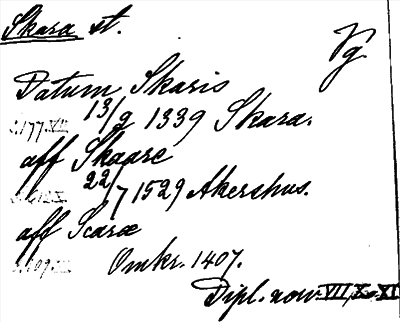 Skara st.
Vg.
Datum Skaris
13/9 1339 Skara.
s. 177. VII
aff Skaare
22/7 1529 Akershus.
aff Scaræ
Omkr. 1407.
Dipl. norv. VII, X, XI